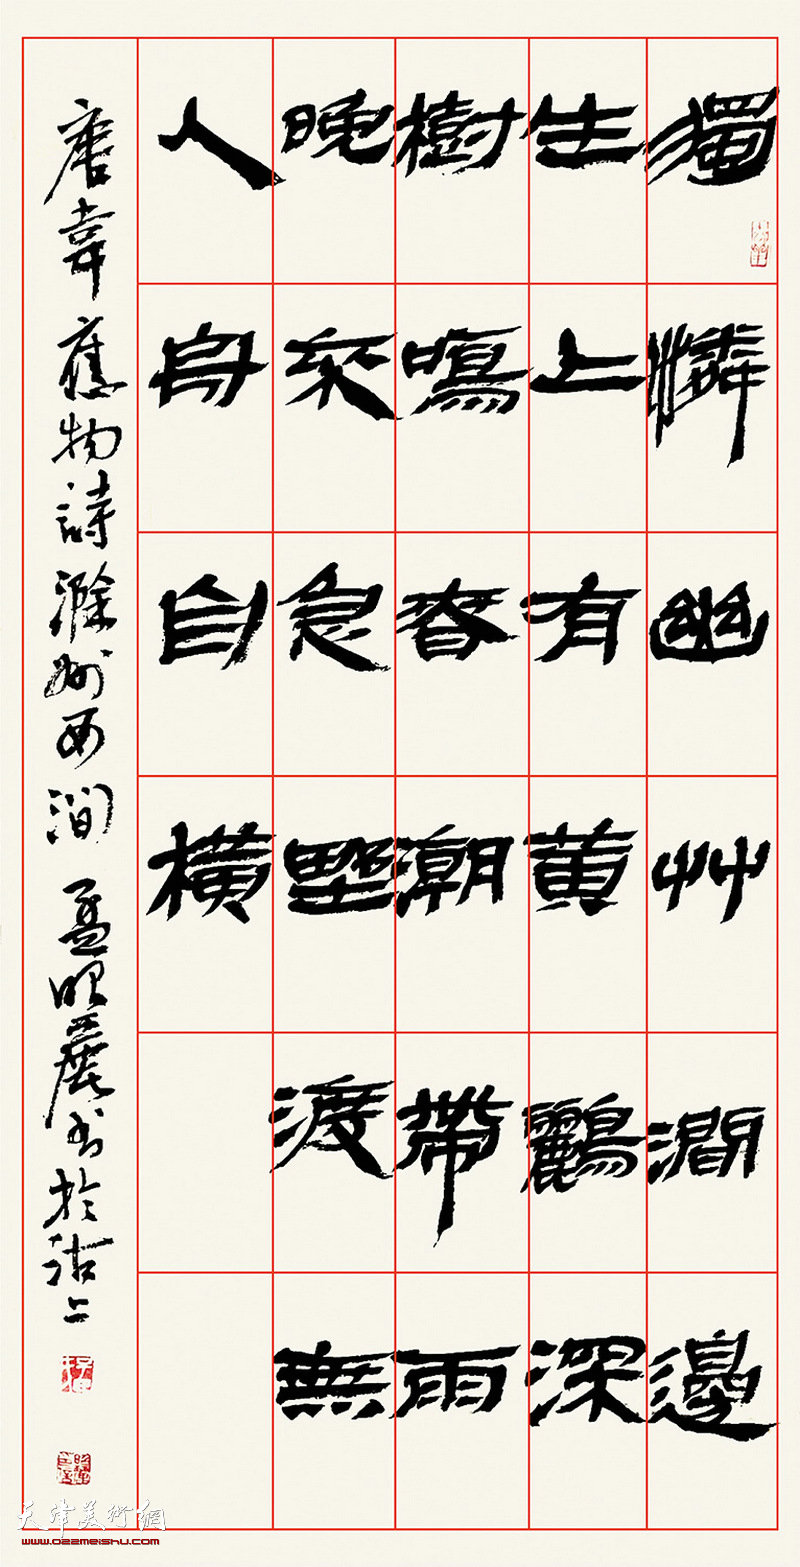 獨憐幽艸澗邊
生上有黃鸝深
樹鳴春潮帶雨
晚來急野渡無
人舟自橫
唐韋應物詩滁州西澗 孟昭麗書於沽上
天津美術網
www.022meishu.com